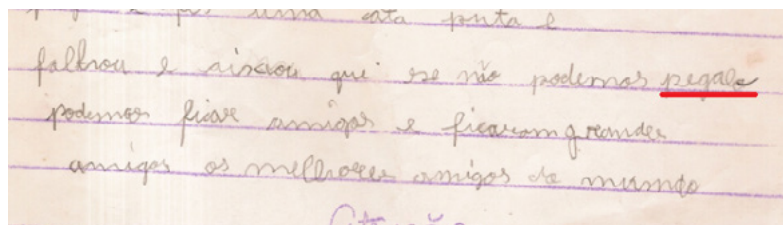 uma ata preta e
falhou e aiscou qui se não podemos pegala
podemos ficar amigos e ficaram grandes
amigos os melhores amigos do mundo